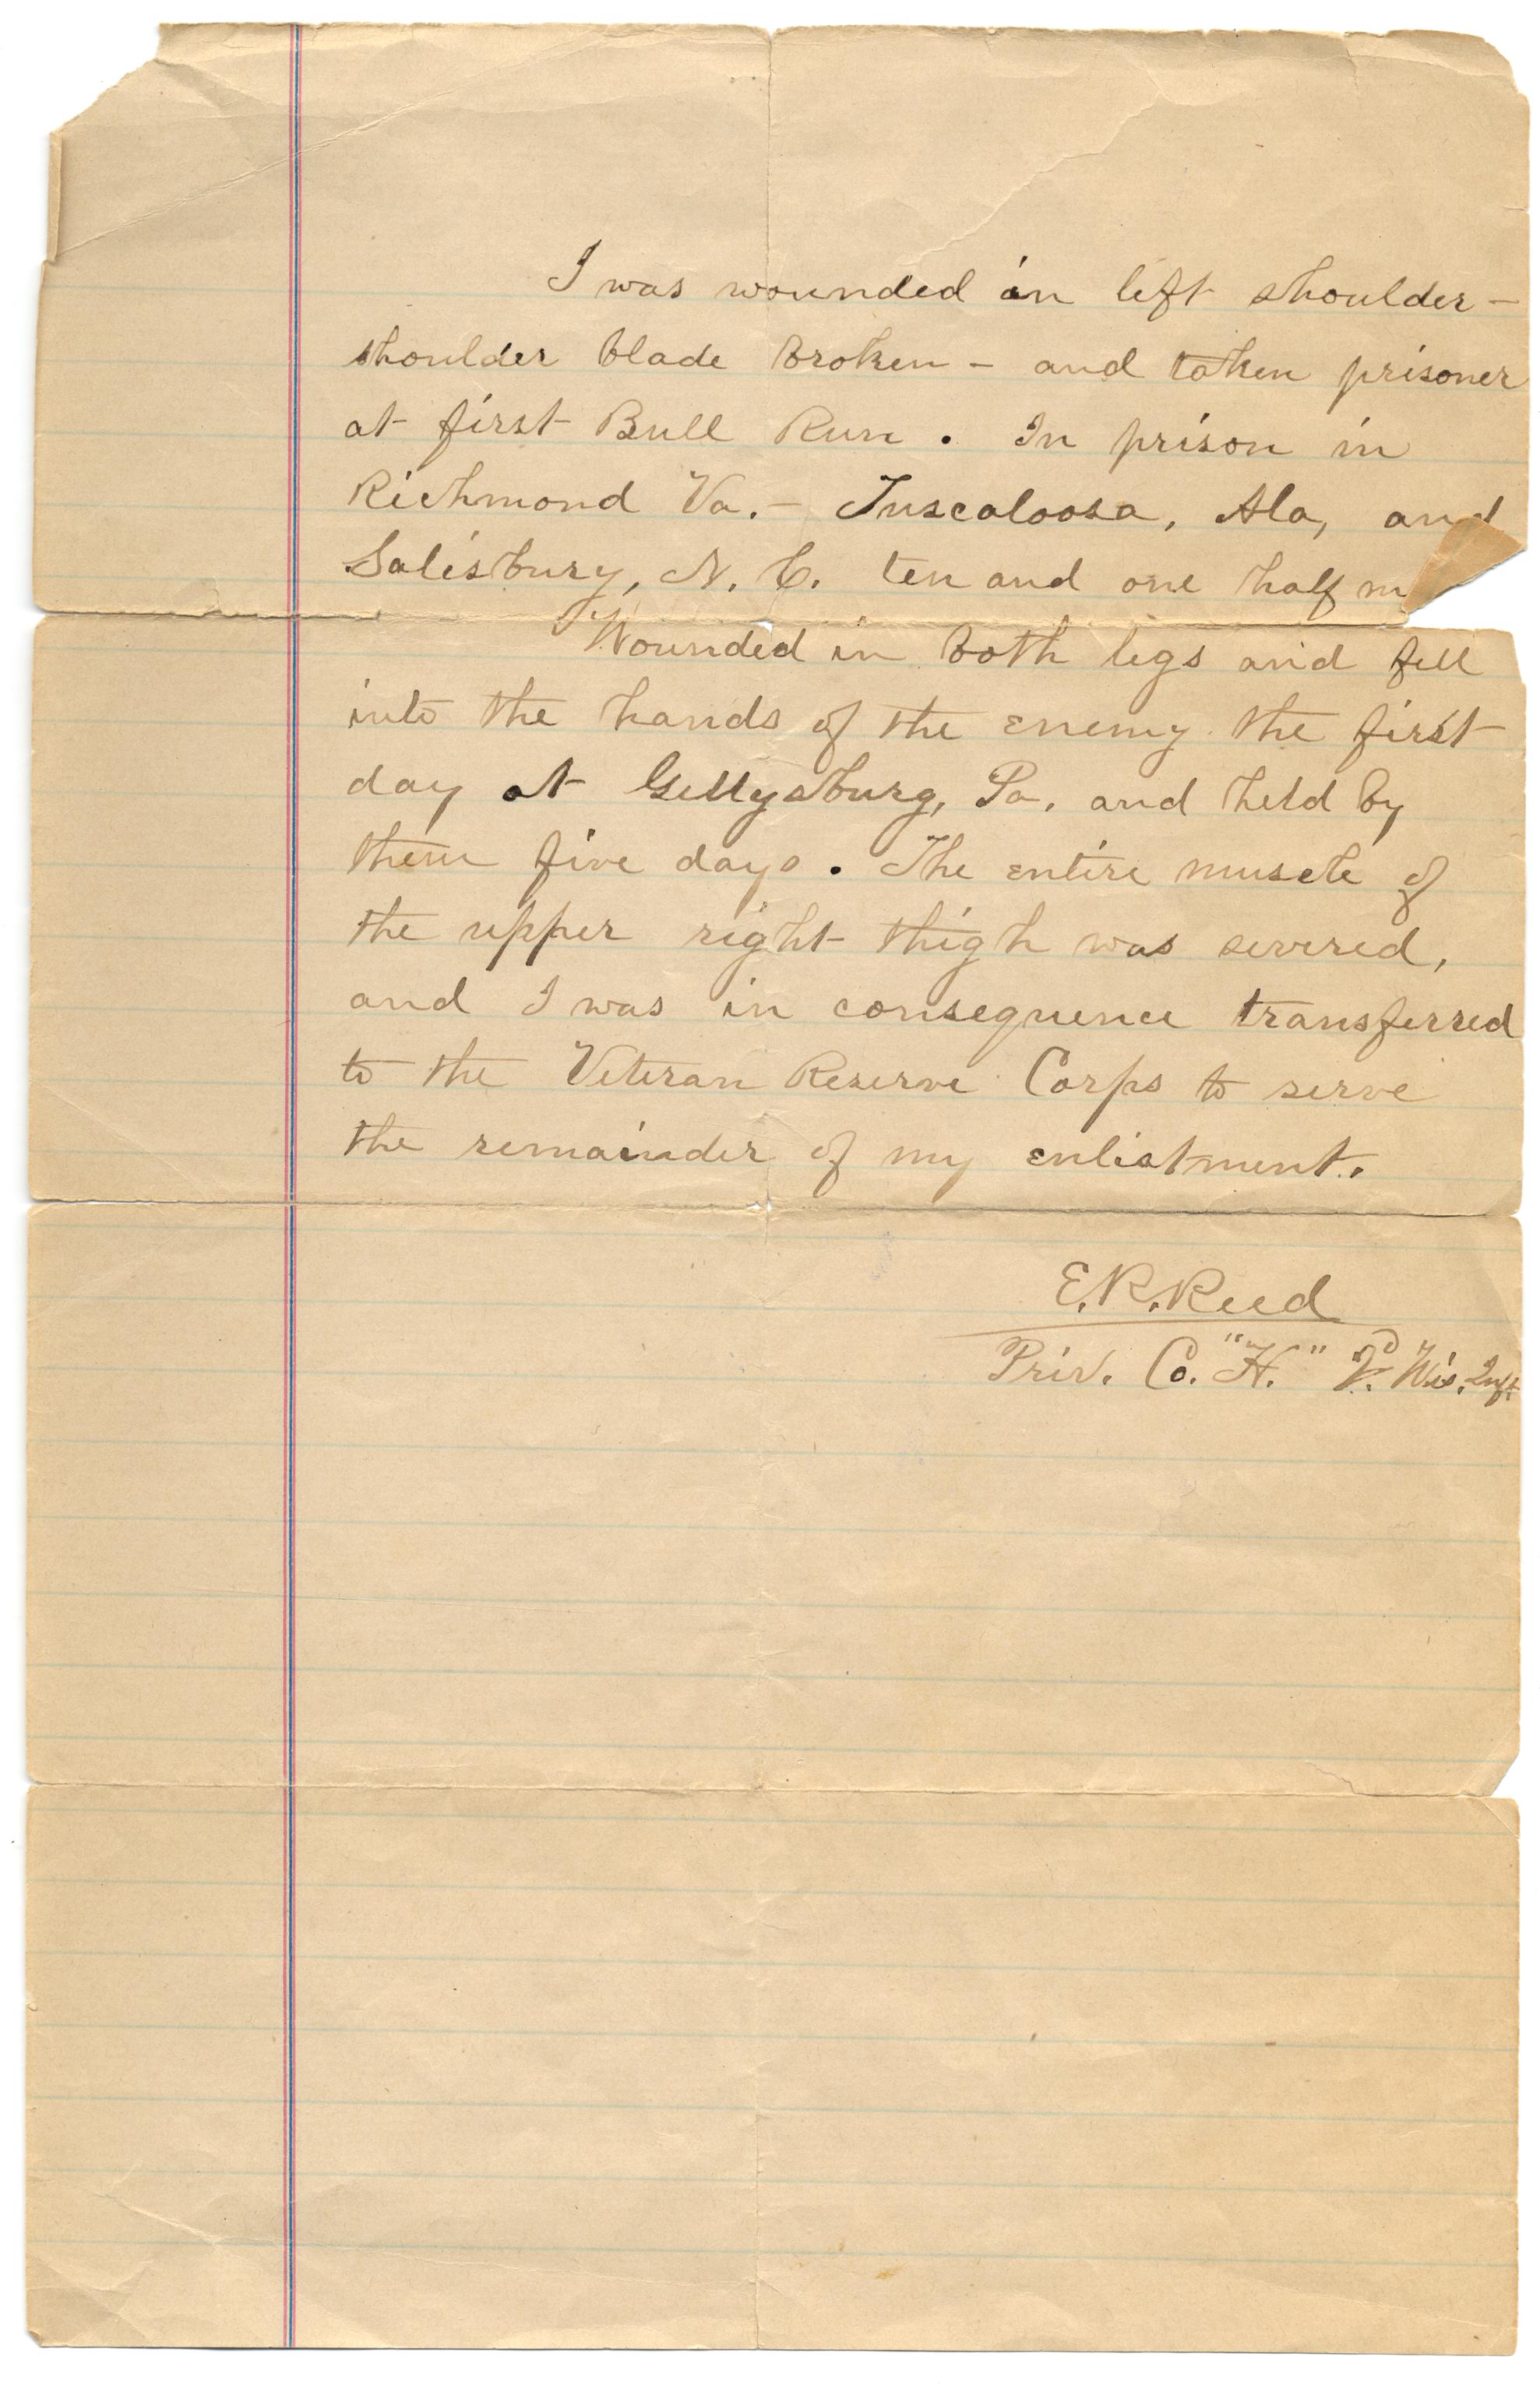 I was wounded in left shoulder –
shoulder blade broken – and taken prisoner
at first Bull Run. In prison in
Richmond Va. – Tuscaloosa, Ala, and
Salisbury, N. C. ten and one half m
Wounded in both legs and fell
into the hands of the enemy the first
day at Gettysburg, Pa. and held by
them five days. The entire muscle of
the upper right thigh was severed,
and I was in consequence transferred
to the Veteran Reserve Corps to serve
the remainder of my enlistment.
E. R. Reed
Priv. Co. "H." Wis. Inft.